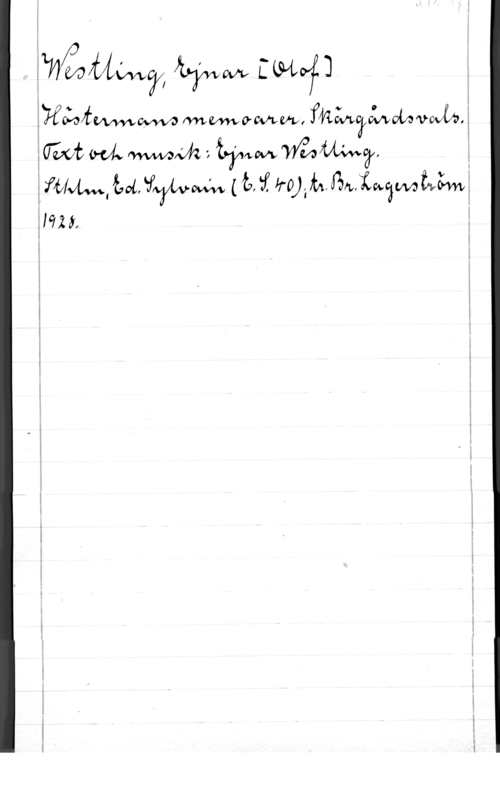 Westling, Ejnar [Olof]
Höstermans memoarer. Skärgårdsvals.
Text och musik: Ejnar Westling.
Sthlm, Ed. Sylvain (E. S. 40); tr. Br. Lagerström
1928.